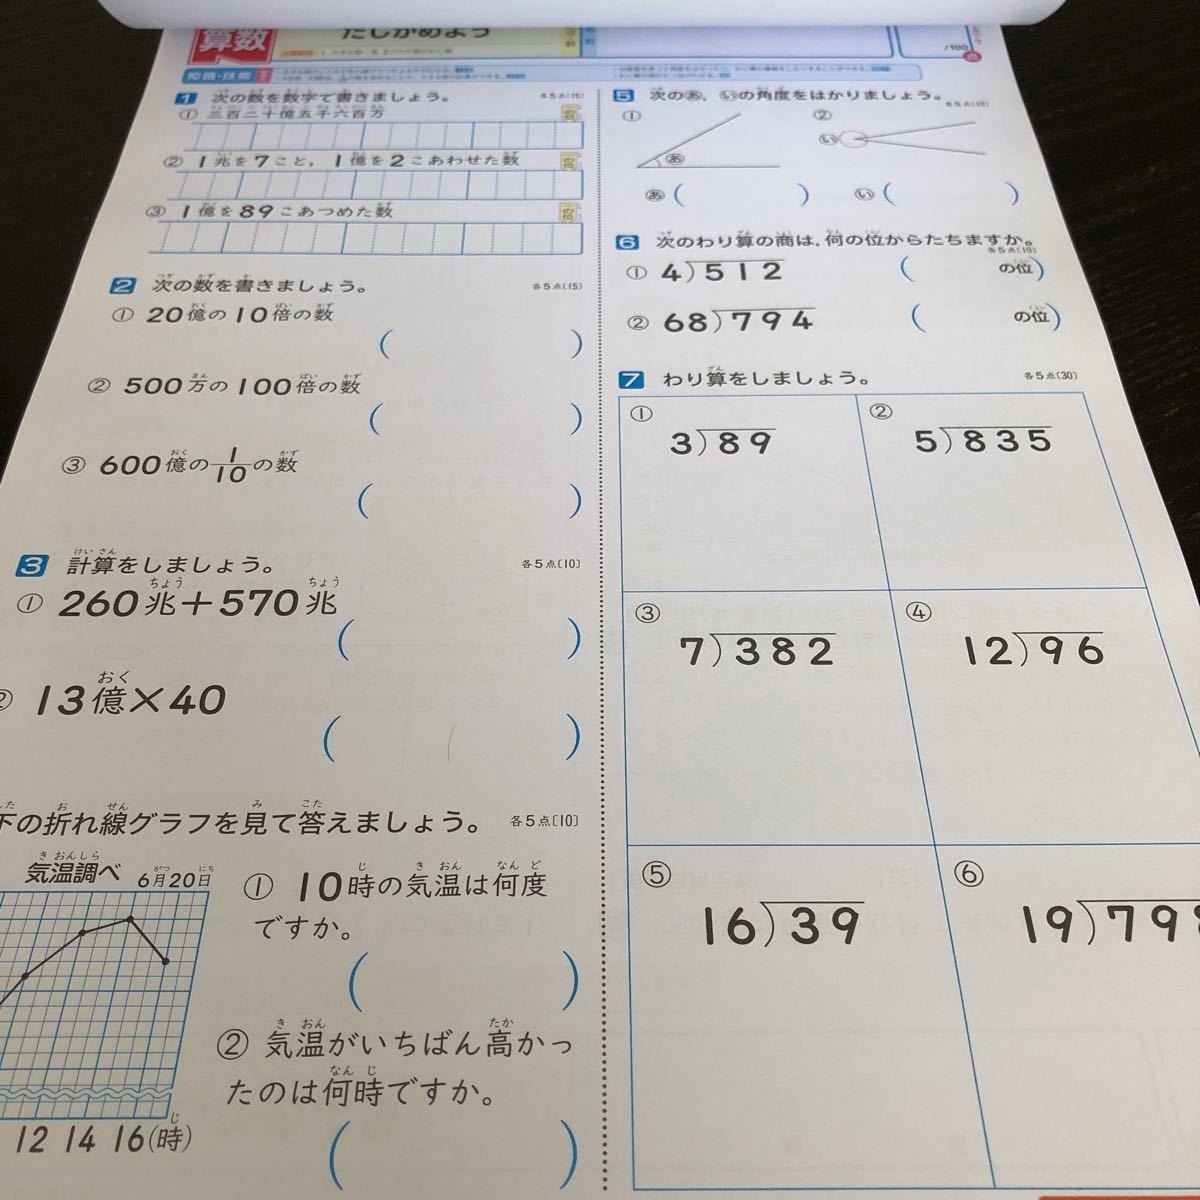 算数
たしかめよう
/100
点
知識・技能
1 次の数を数字で書きましょう。 各5点〔15〕
① 三百二十億五千六百万
一の位
② 1兆を7こと，1億を2こあわせた数
一の位
③ 1億を89こあつめた数
一の位
2 次の数を書きましょう。 各5点〔15〕
① 20億の10倍の数
( )
② 500万の100倍の数
( )
③ 600億の1/10の数
( )
3 計算をしましょう。 各5点〔10〕
① 260兆＋570兆
( )
② 13億×40
( )
下の折れ線グラフを見て答えましょう。 各5点〔10〕
気温調べ 6月20日
12 14 16(時)
① 10時の気温は何度
ですか。
( )
② 気温がいちばん高かっ
たのは何時ですか。
( )
5 次のあ，いの角度をはかりましょう。 各5点〔10〕
① あ
② い
あ( ) い( )
6 次のわり算の商は，何の位からたちますか。
各5点〔10〕
① 4)512 ( の位)
② 68)794 ( の位)
7 わり算をしましょう。 各5点〔30〕
① 3)89
② 5)835
③ 7)382
④ 12)96
⑤ 16)39
⑥ 19)798